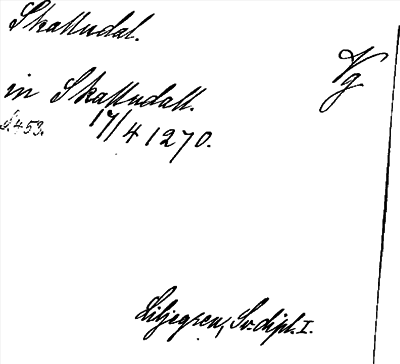 Skalludal.
Vg
in Skalludall.
S.453. 17/4 1270.
Liljegren, Sv. dipl. I.